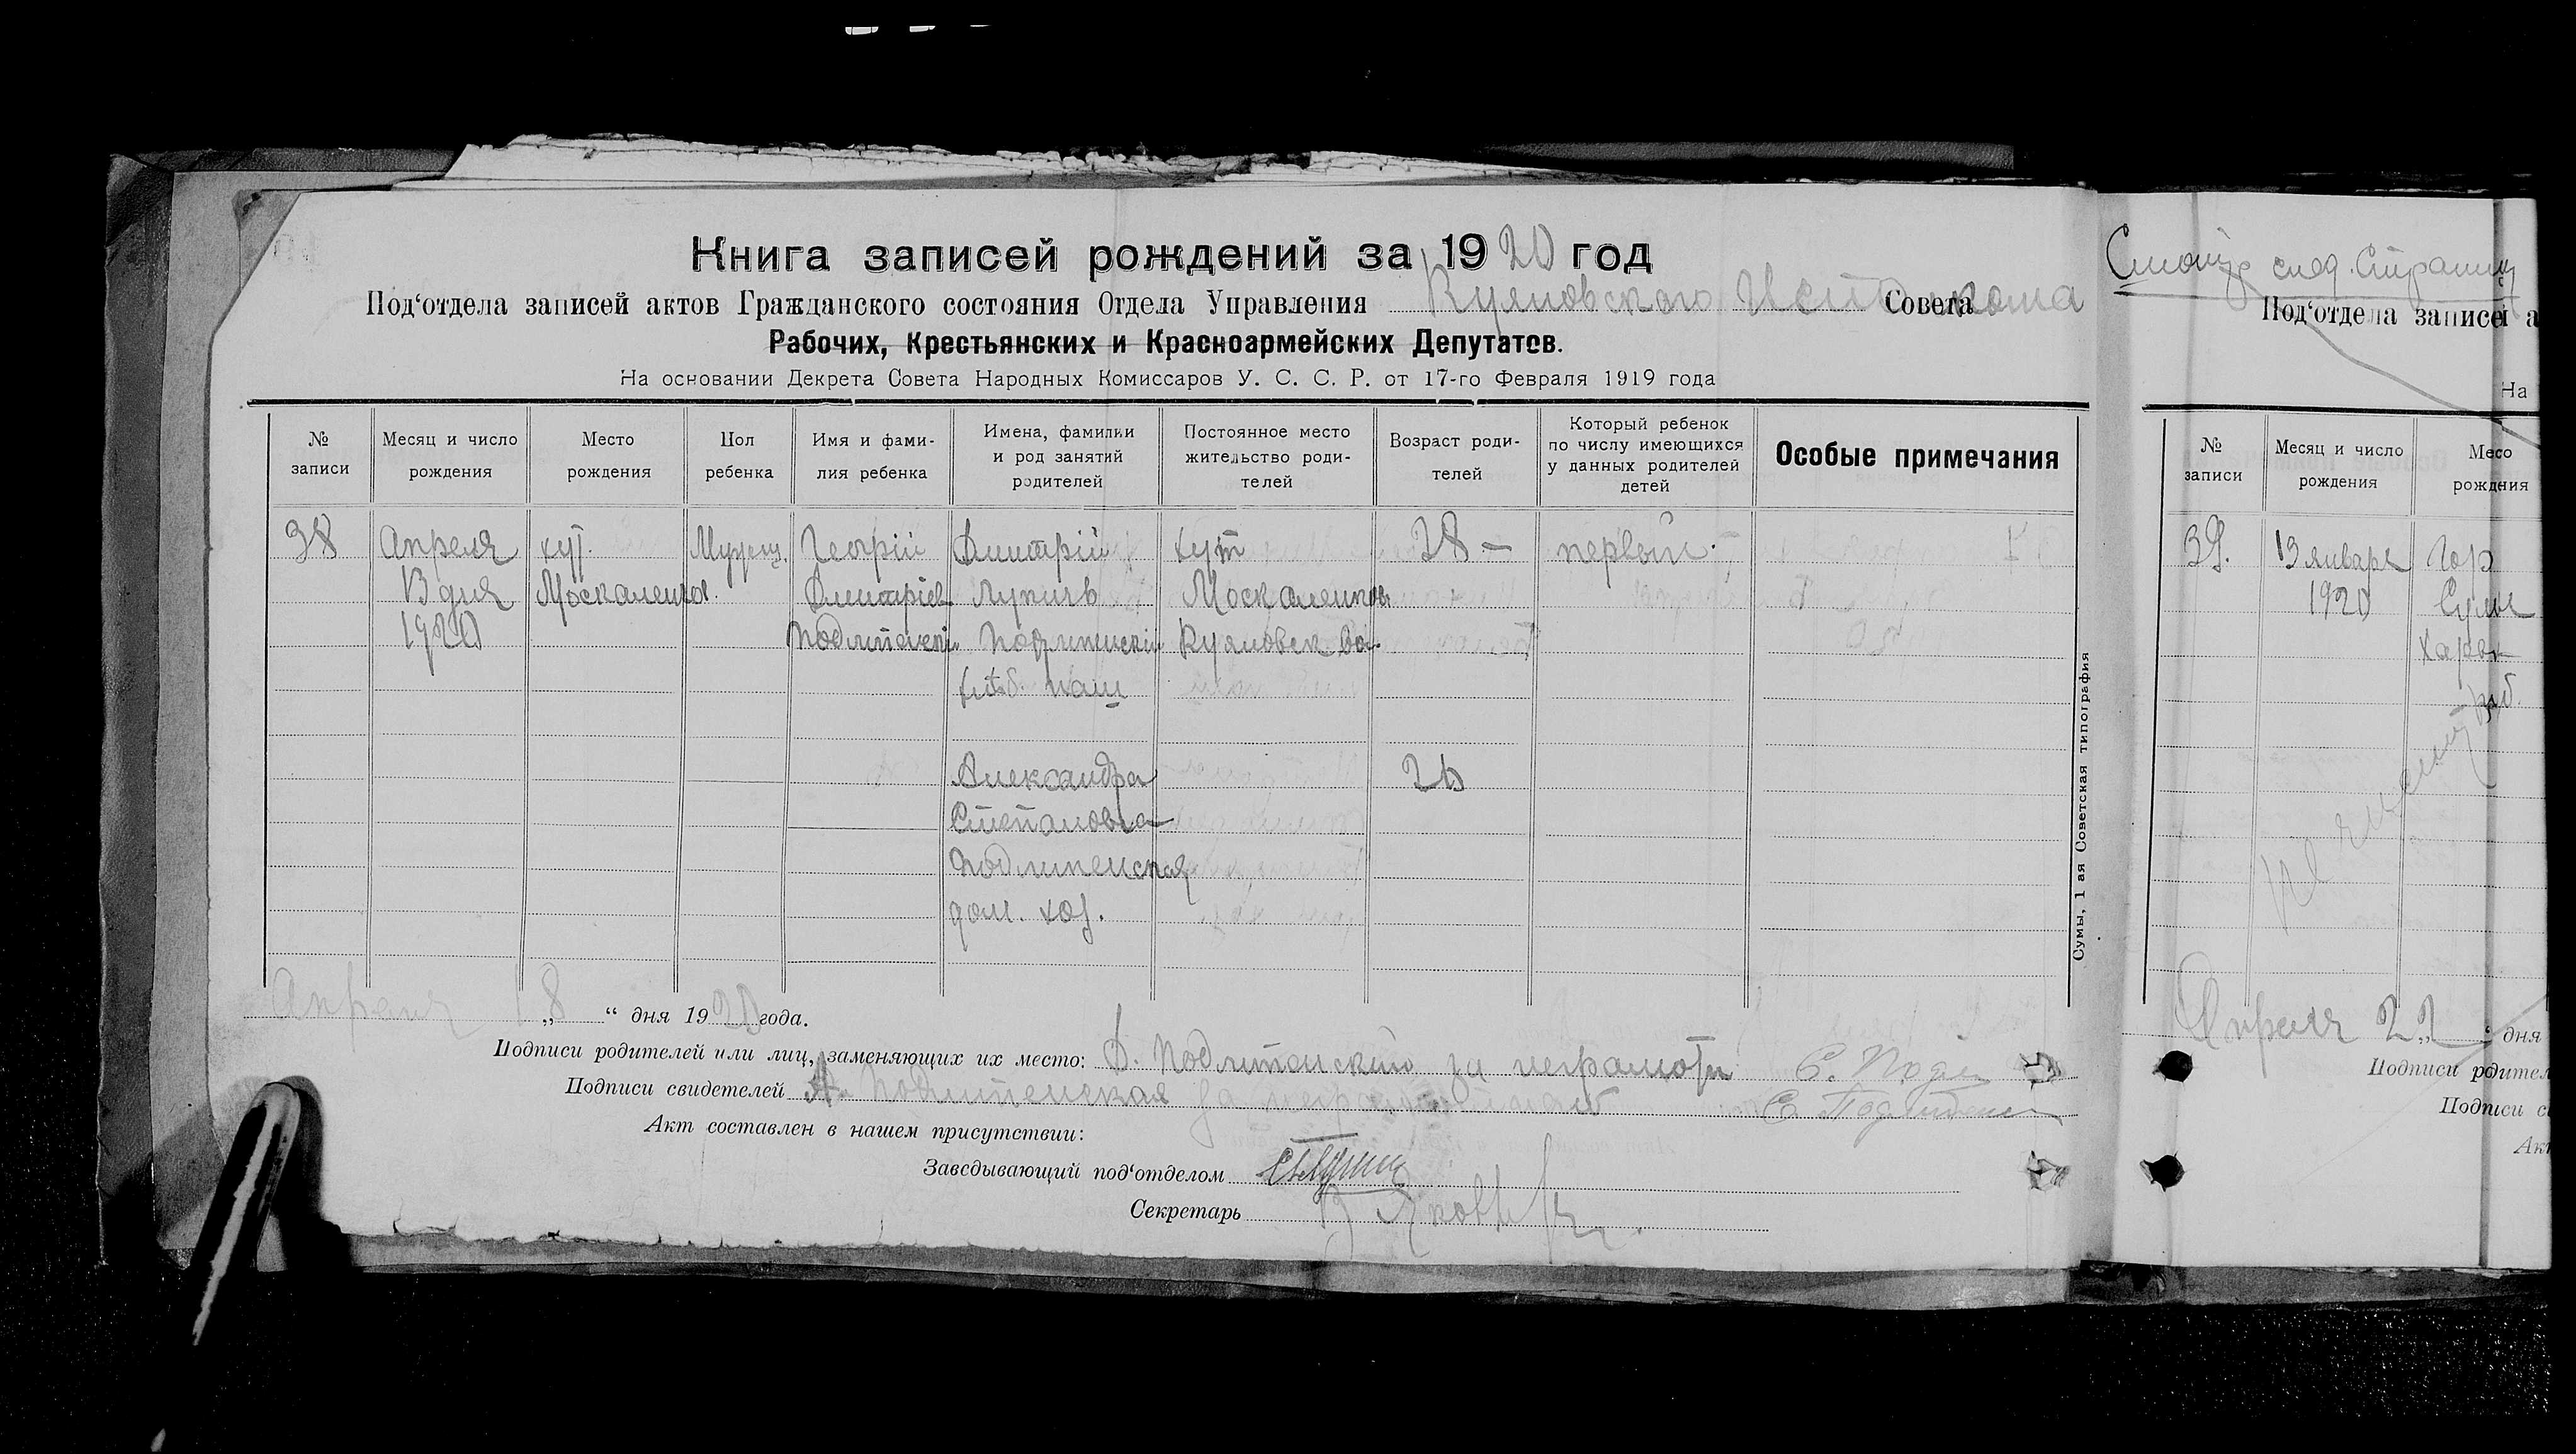 Книга записей рождений за 1920 год
Под‘отдела записей актов Гражданского состояния Отдела Управления Куяновского Совета
Рабочих, Крестьянских и Красноармейских Депутатов.
На основании Декрета Совета Народных Комиссаров У. С. С. Р. от 17-го Февраля 1919 года
№ записи
Месяц и число рождения
Место рождения
Пол ребенка
Имя и фамилия ребенка
Имена, фамилии и род занятий родителей
Постоянное место жительство родителей
Возраст родителей
Который ребенок по числу имеющихся у данных родителей детей
Особые примечания
38
Апреля
13 дня
1920
хут.
Москаленков.
Мужеш.
Георгій
Дмитріев
Подлипенскі
Дмитрій
Лупичъ
Подлипенскій
хлѣб. паш
Александра
Степановна
Подлипенская
дом. хоз.
хут
Москаленков
Куяновск во.
28 —
20
первый.
Апреля 18 “ дня 1920 года.
Подписи родителей или лиц, заменяющих их место: Д. Подлипенский за неграмотн С. Подл
Подписи свидетелей А. Подлипенская за С. Подлипен
Акт составлен в нашем присутствии:
Заведывающий под‘отделом
Секретарь
Сумы, 1 ая Советская типография
след. Страниц
Под‘отдела записей а
На
№ записи
Месяц и число рождения
Место рождения
39.
13 января
1920
Гор
Сумы
Харьк
Апреля 22 “ дня
Подписи родител
Подписи с
Акт